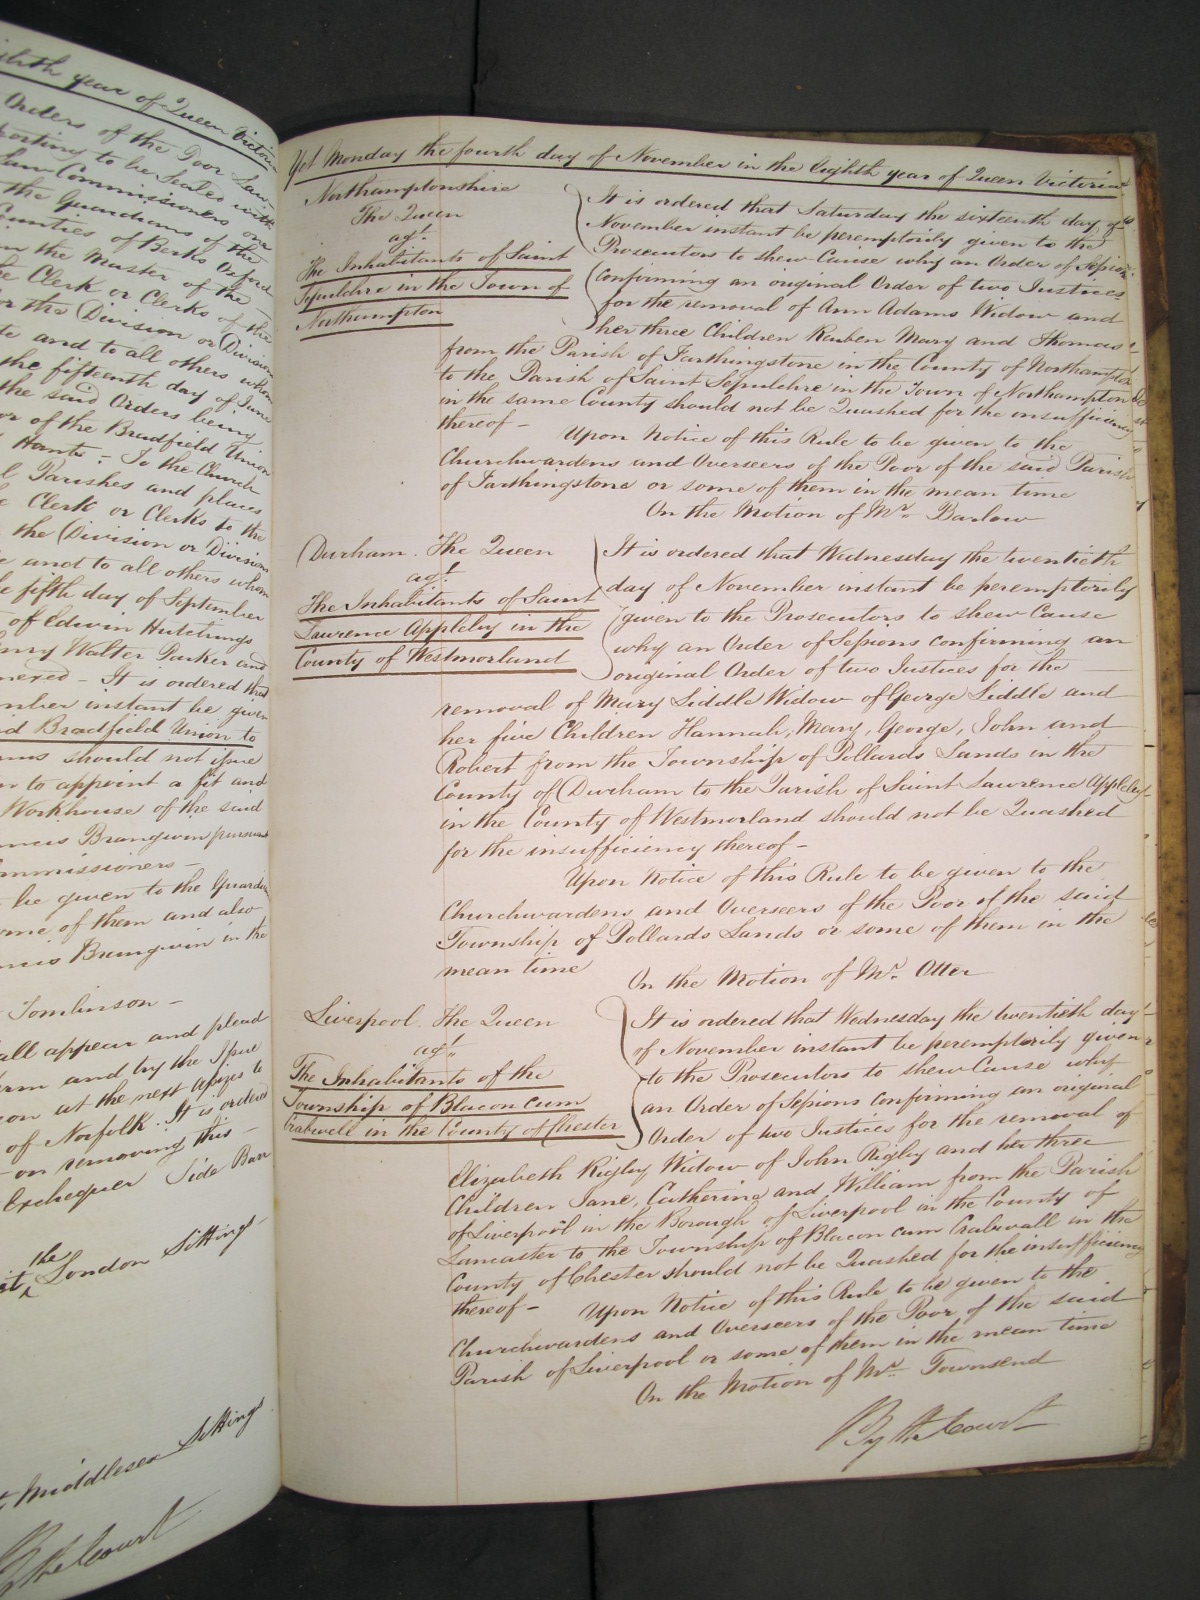 eighth year of Queen Victoria
Orders of the Poor Law
porting to be Sealed with
Law Commissioners or
the Guardians of the
Counties of Berks Oxford
the Master of the
Clerk or Clerks of the
or the Division or Division
and to all others whom
the fifteenth day of June
the said Orders being
or of the Bradfield Union
Hants - To the Church
Parishes and places
Clerk or Clerks to the
the Division or Division
and to all others whom
fifth day of September
of Edwin Hutchings
Henry Walter Parker and
nexed - It is ordered that
mber instant be given
Bradfield Union to
should not issue
to appoint a fit and
Workhouse of the said
ncis Brangwin pursuant
mmissioners -
be given to the Guardians
ome of them and also
ncis Brangwin in the
Tomlinson -
all appear and plead
erm and try the Issue
at the next Assizes to
of Norfolk. It is ordered
- on removing this -
Exchequer Side Bar
the
London Sitting
Middlesex Sittings
By the Court
Yet Monday the fourth day of November in the Eighth year of Queen Victoria
Northamptonshire
The Queen
agt.
The Inhabitants of Saint
Sepulchre in the Town of
Northampton
It is ordered that Saturday the sixteenth day of
November instant be peremptorily given to the
Prosecutors to shew Cause why an Order of Sessions
confirming an original Order of two Justices
for the removal of Ann Adams Widow and
her three Children Reuben Mary and Thomas
from the Parish of Farthingstone in the County of Northampton
to the Parish of Saint Sepulchre in the Town of Northampton
in the same County should not be Quashed for the insufficiency
thereof -
Upon Notice of this Rule to be given to the
Churchwardens and Overseers of the Poor of the said Parish
of Farthingstone or some of them in the mean time
On the Motion of Mr. Barlow
Durham. The Queen
agt.
The Inhabitants of Saint
Lawrence Appleby in the
County of Westmorland
It is ordered that Wednesday the twentieth
day of November instant be peremptorily
given to the Prosecutors to shew Cause
why an Order of Sessions confirming an
original Order of two Justices for the
removal of Mary Liddle Widow of George Liddle and
her five Children Hannah, Mary, George, John and
Robert from the Township of Pollards Lands in the
County of Durham to the Parish of Saint Lawrence Appleby
in the County of Westmorland should not be Quashed
for the insufficiency thereof -
Upon Notice of this Rule to be given to the
Churchwardens and Overseers of the Poor of the said
Township of Pollards Lands or some of them in the
mean time
On the Motion of Mr. Otter
Liverpool. The Queen
agt.
The Inhabitants of the
Township of Blacon cum
Crabwell in the County of Chester
It is ordered that Wednesday the twentieth day
of November instant be peremptorily given
to the Prosecutors to shew Cause why
an Order of Sessions confirming an original
Order of two Justices for the removal of
Elizabeth Rigby Widow of John Rigby and her three
Children Jane, Catherine and William from the Parish
of Liverpool in the Borough of Liverpool in the County of
Lancaster to the Township of Blacon cum Crabwall in the
County of Chester should not be Quashed for the insufficiency
thereof - Upon Notice of this Rule to be given to the
Churchwardens and Overseers of the Poor of the said
Parish of Liverpool or some of them in the mean time
On the Motion of Mr. Townsend
By the Court